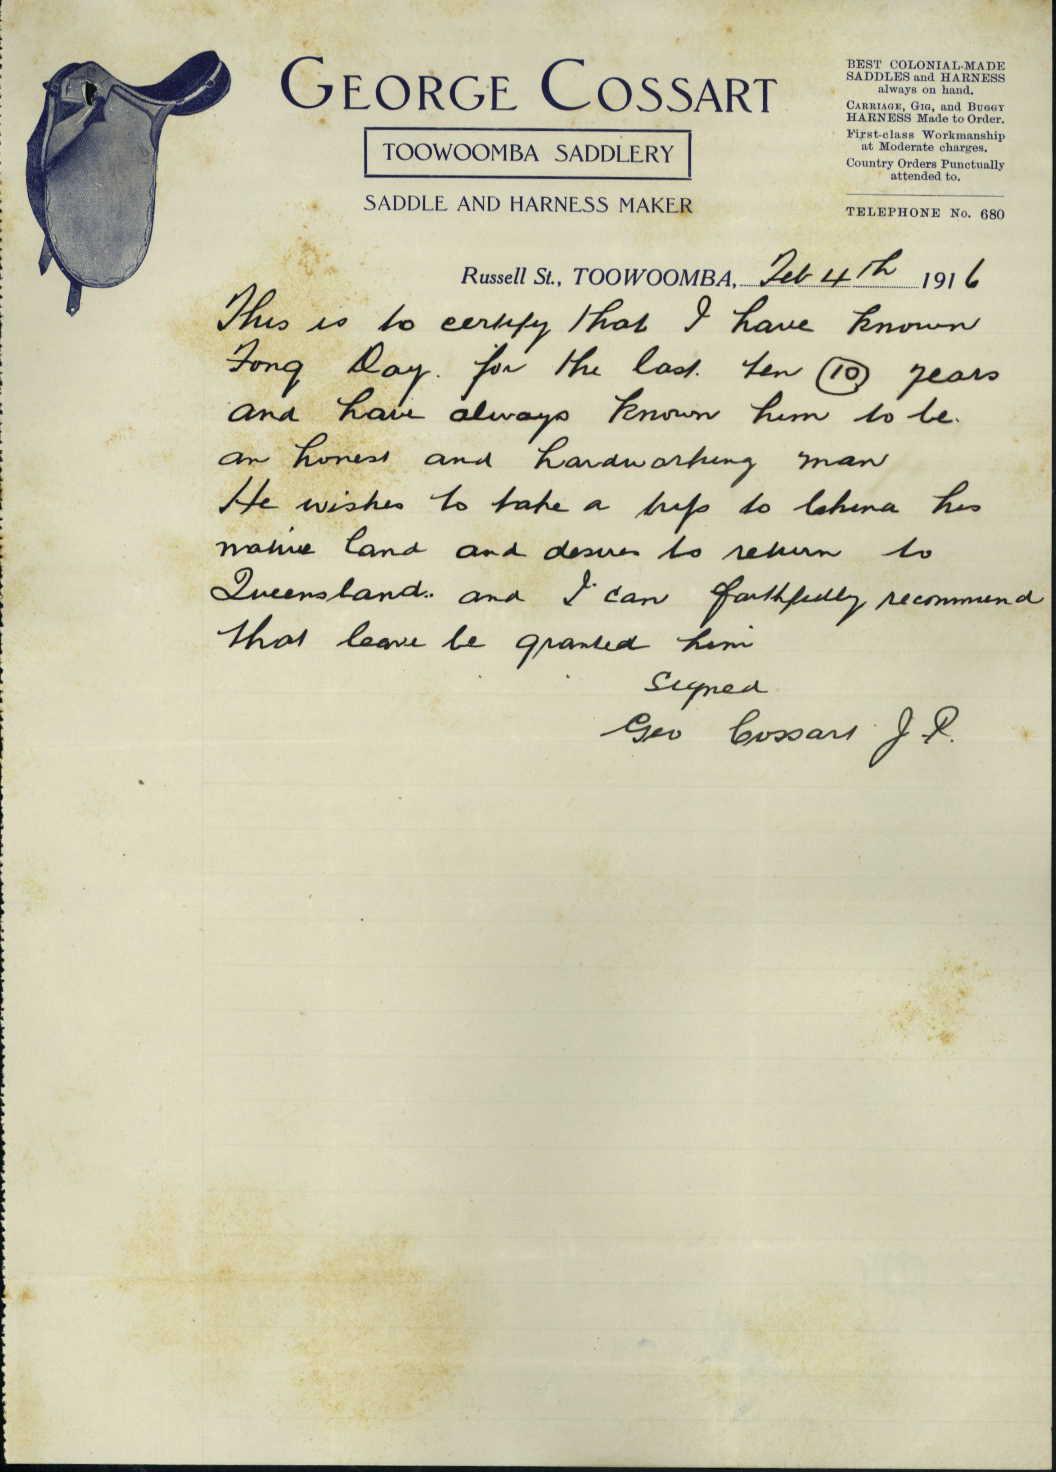 GEORGE COSSART
TOOWOOMBA SADDLERY
SADDLE AND HARNESS MAKER
BEST COLONIAL-MADE
SADDLES and HARNESS
always on hand.
CARRIAGE, GIG, and BUGGY
HARNESS Made to Order.
First-class Workmanship
at Moderate charges.
Country Orders Punctually
attended to.
TELEPHONE No. 680
Russell St., TOOWOOMBA, Feb 4th 1916
This is to certify that I have known
Fong Day. for the last. ten (10) years
and have always known him to be.
an honest and hardworking man
He wishes to take a trip to China his
native land and desires to return to
Queensland. and I can faithfully recommend
that leave be granted him
Signed
Geo Cossart J.P.